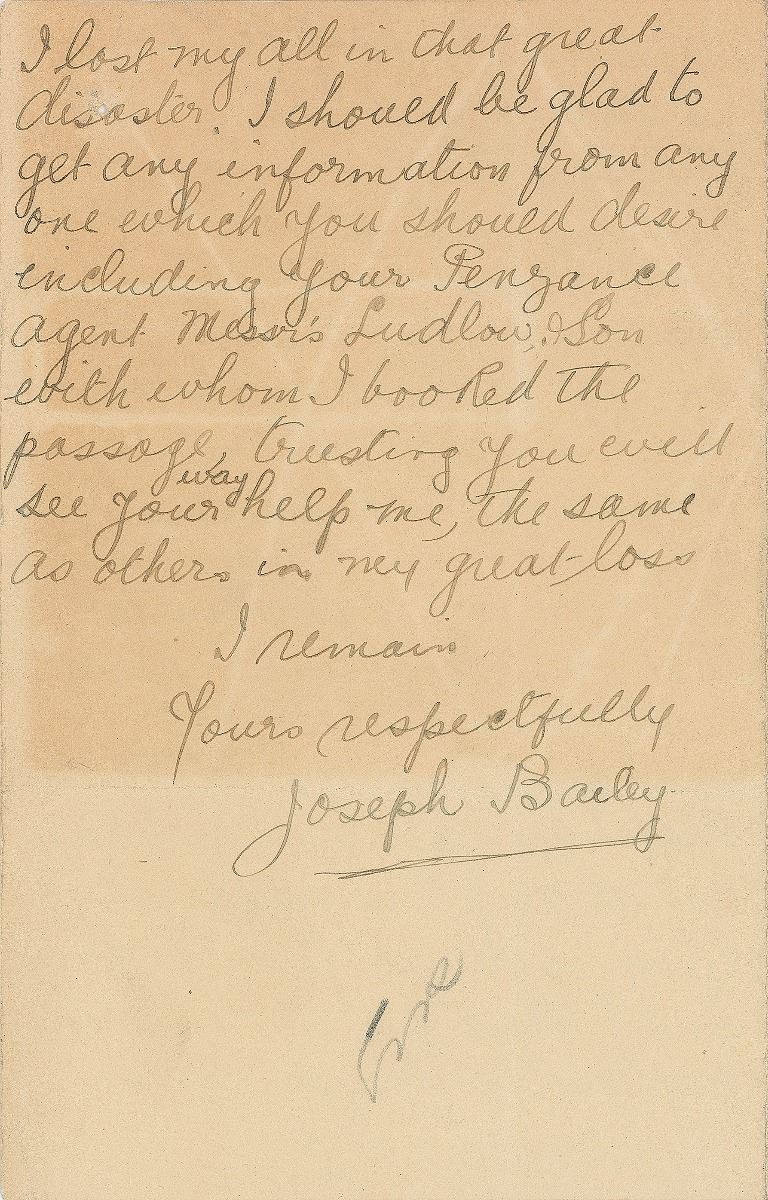 I lost my all in that great
disaster. I should be glad to
get any information from any
one which you should desire
including your Penzance
agent Messrs Ludlow, & Son
with whom I booked the
passage, trusting you will
way
see your help me, the same
as others in my great loss
I remain
Yours respectfully
Joseph Bailey